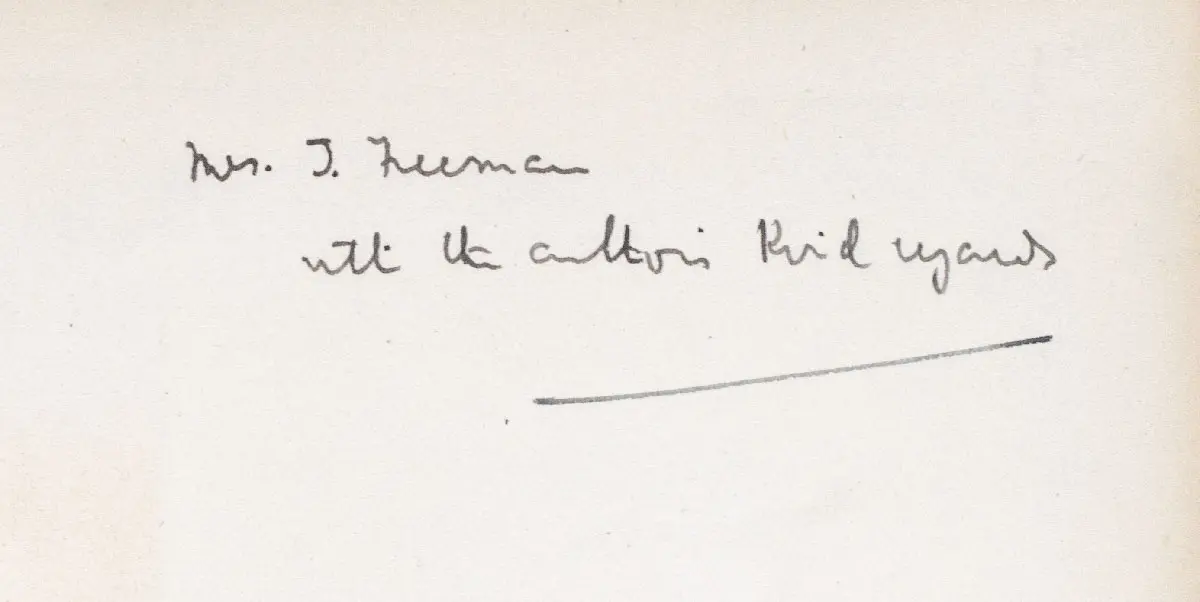 Mrs. J. Freeman
with the author's kind regards